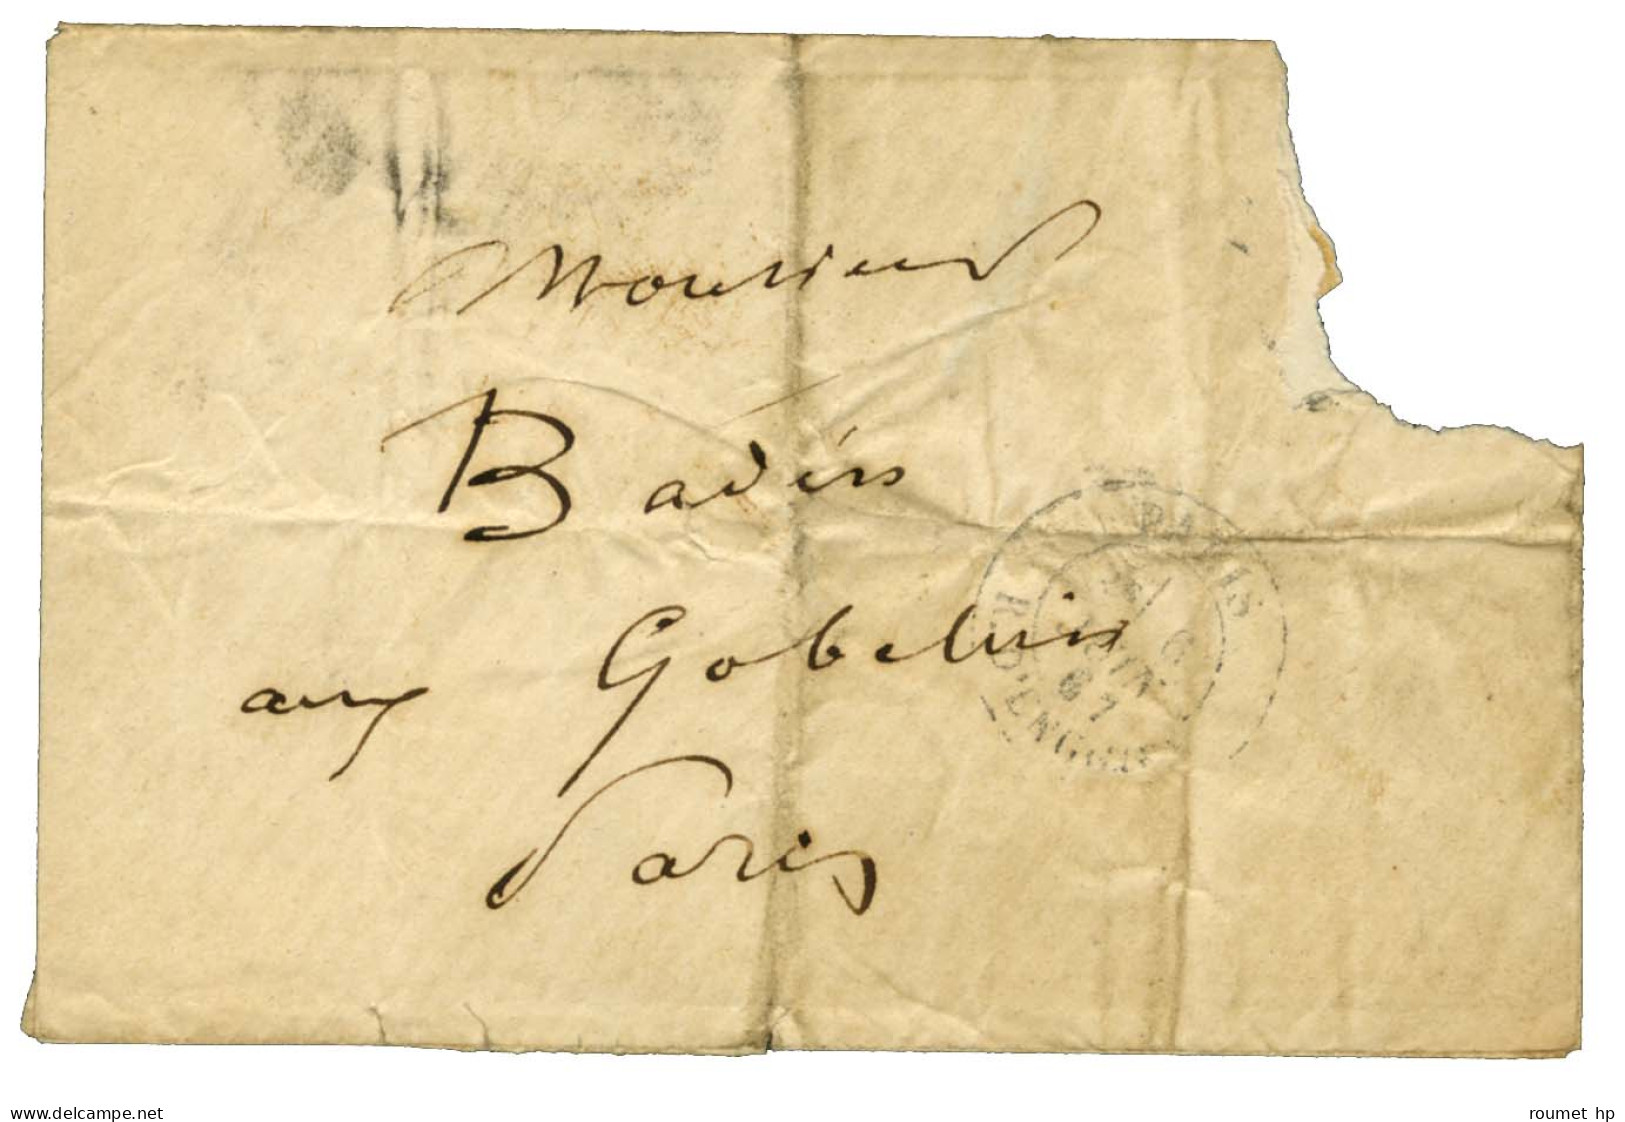 Monsieur
Badin
aux Gobelins
Paris
PARIS
6
JUIN
67
R. D'ENGHIEN
delcampe.net
roumet hp